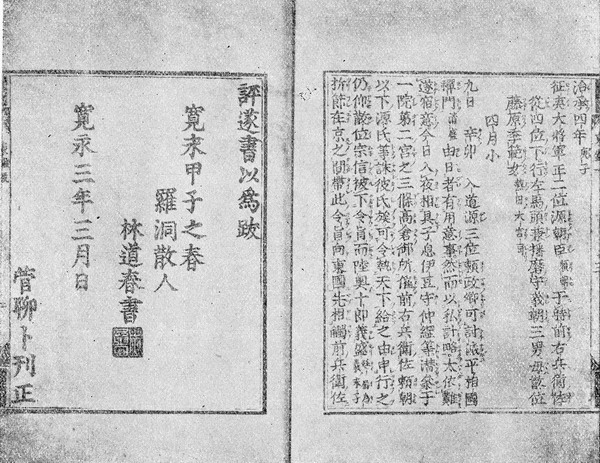 治承四年 庚子
征夷大將軍正二位源朝臣 頼朝 于時前右兵衛佐
從四位下行左馬頭兼播磨守義朝三男母散位
藤原季範女 熱田大宮司
四月小
九日 辛卯 入道源三位頼政卿可討滅平相國
禪門 清盛 由日者有用意事然而以私計略太依難
遂宿意今日入夜相具子息伊豆守仲綱等潜參于
一院第二宮之三條高倉御所催前右兵衛佐頼朝
以下源氏等誅彼氏族可令執天下給之由申行之
仍仰散位宗信被下令旨而陸奥十郎義盛 義末子
折節在京之間帶此令旨向東國先相觸前兵衛佐
評遂書以為跋
寛永甲子之春
羅洞散人
林道春書
寛永三年三月日
菅聊卜刊正